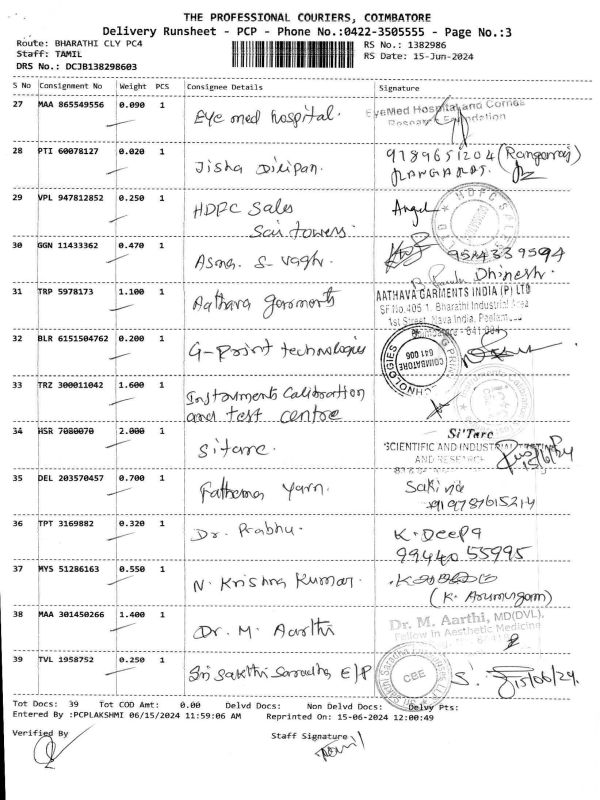 THE PROFESSIONAL COURIERS, COIMBATORE
Delivery Runsheet - PCP - Phone No.:0422-3505555 - Page No.:3
Route: BHARATHI CLY PC4
Staff: TAMIL
DRS No.: DCJB138298603
RS No.: 1382986
RS Date: 15-Jun-2024
S No Consignment No Weight PCS Consignee Details Signature
27 MAA 865549556 0.090 1
Eye med hospital.
EyeMed Hospital and Cornea
Research Foundation
28 PTI 60078127 0.020 1
Jisha Dilipan.
9789651204 (Rangarraj)
29 VPL 947812852 0.250 1
HDFC Sales
Sai towers.
Angel
HDFC SALES
30 GGN 11433362 0.470 1
Asma. S- vaghr.
9514339594
Dhinesh.
31 TRP 5978173 1.100 1
Aathava garments
AATHAVA GARMENTS INDIA (P) LTD
SF No.405 1, Bharathi Industrial Area
1st Street, Nava India, Peelam
Coimbatore - 641 004
32 BLR 6151504762 0.200 1
G-Print technologies
COIMBATORE
641 006
33 TRZ 300011042 1.600 1
Instruments Calibration
and test centre
34 HSR 7080070 2.000 1
Sitarc.
Si'Tarc
SCIENTIFIC AND INDUSTRIAL TESTING
AND RESEARCH
15/6/24
35 DEL 203570457 0.700 1
Fathema Yarn.
Sakina
+919787615214
36 TPT 3169882 0.320 1
Dr. Prabhu.
K. Deepa
99440 55995
37 MYS 51286163 0.550 1
N. Krishna Kumar.
(K. Arumugam)
38 MAA 301450266 1.400 1
Dr. M. Aarthi
Dr. M. Aarthi, MD(DVL),
Fellow in Aesthetic Medicine
39 TVL 1958752 0.250 1
Sri Sakthi Saradha E/P
CEE
15/06/24.
Tot Docs: 39 Tot COD Amt: 0.00 Delvd Docs: Non Delvd Docs: Delvy Pts:
Entered By :PCPLAKSHMI 06/15/2024 11:59:06 AM Reprinted On: 15-06-2024 12:00:49
Verified By
Staff Signature
Tamil